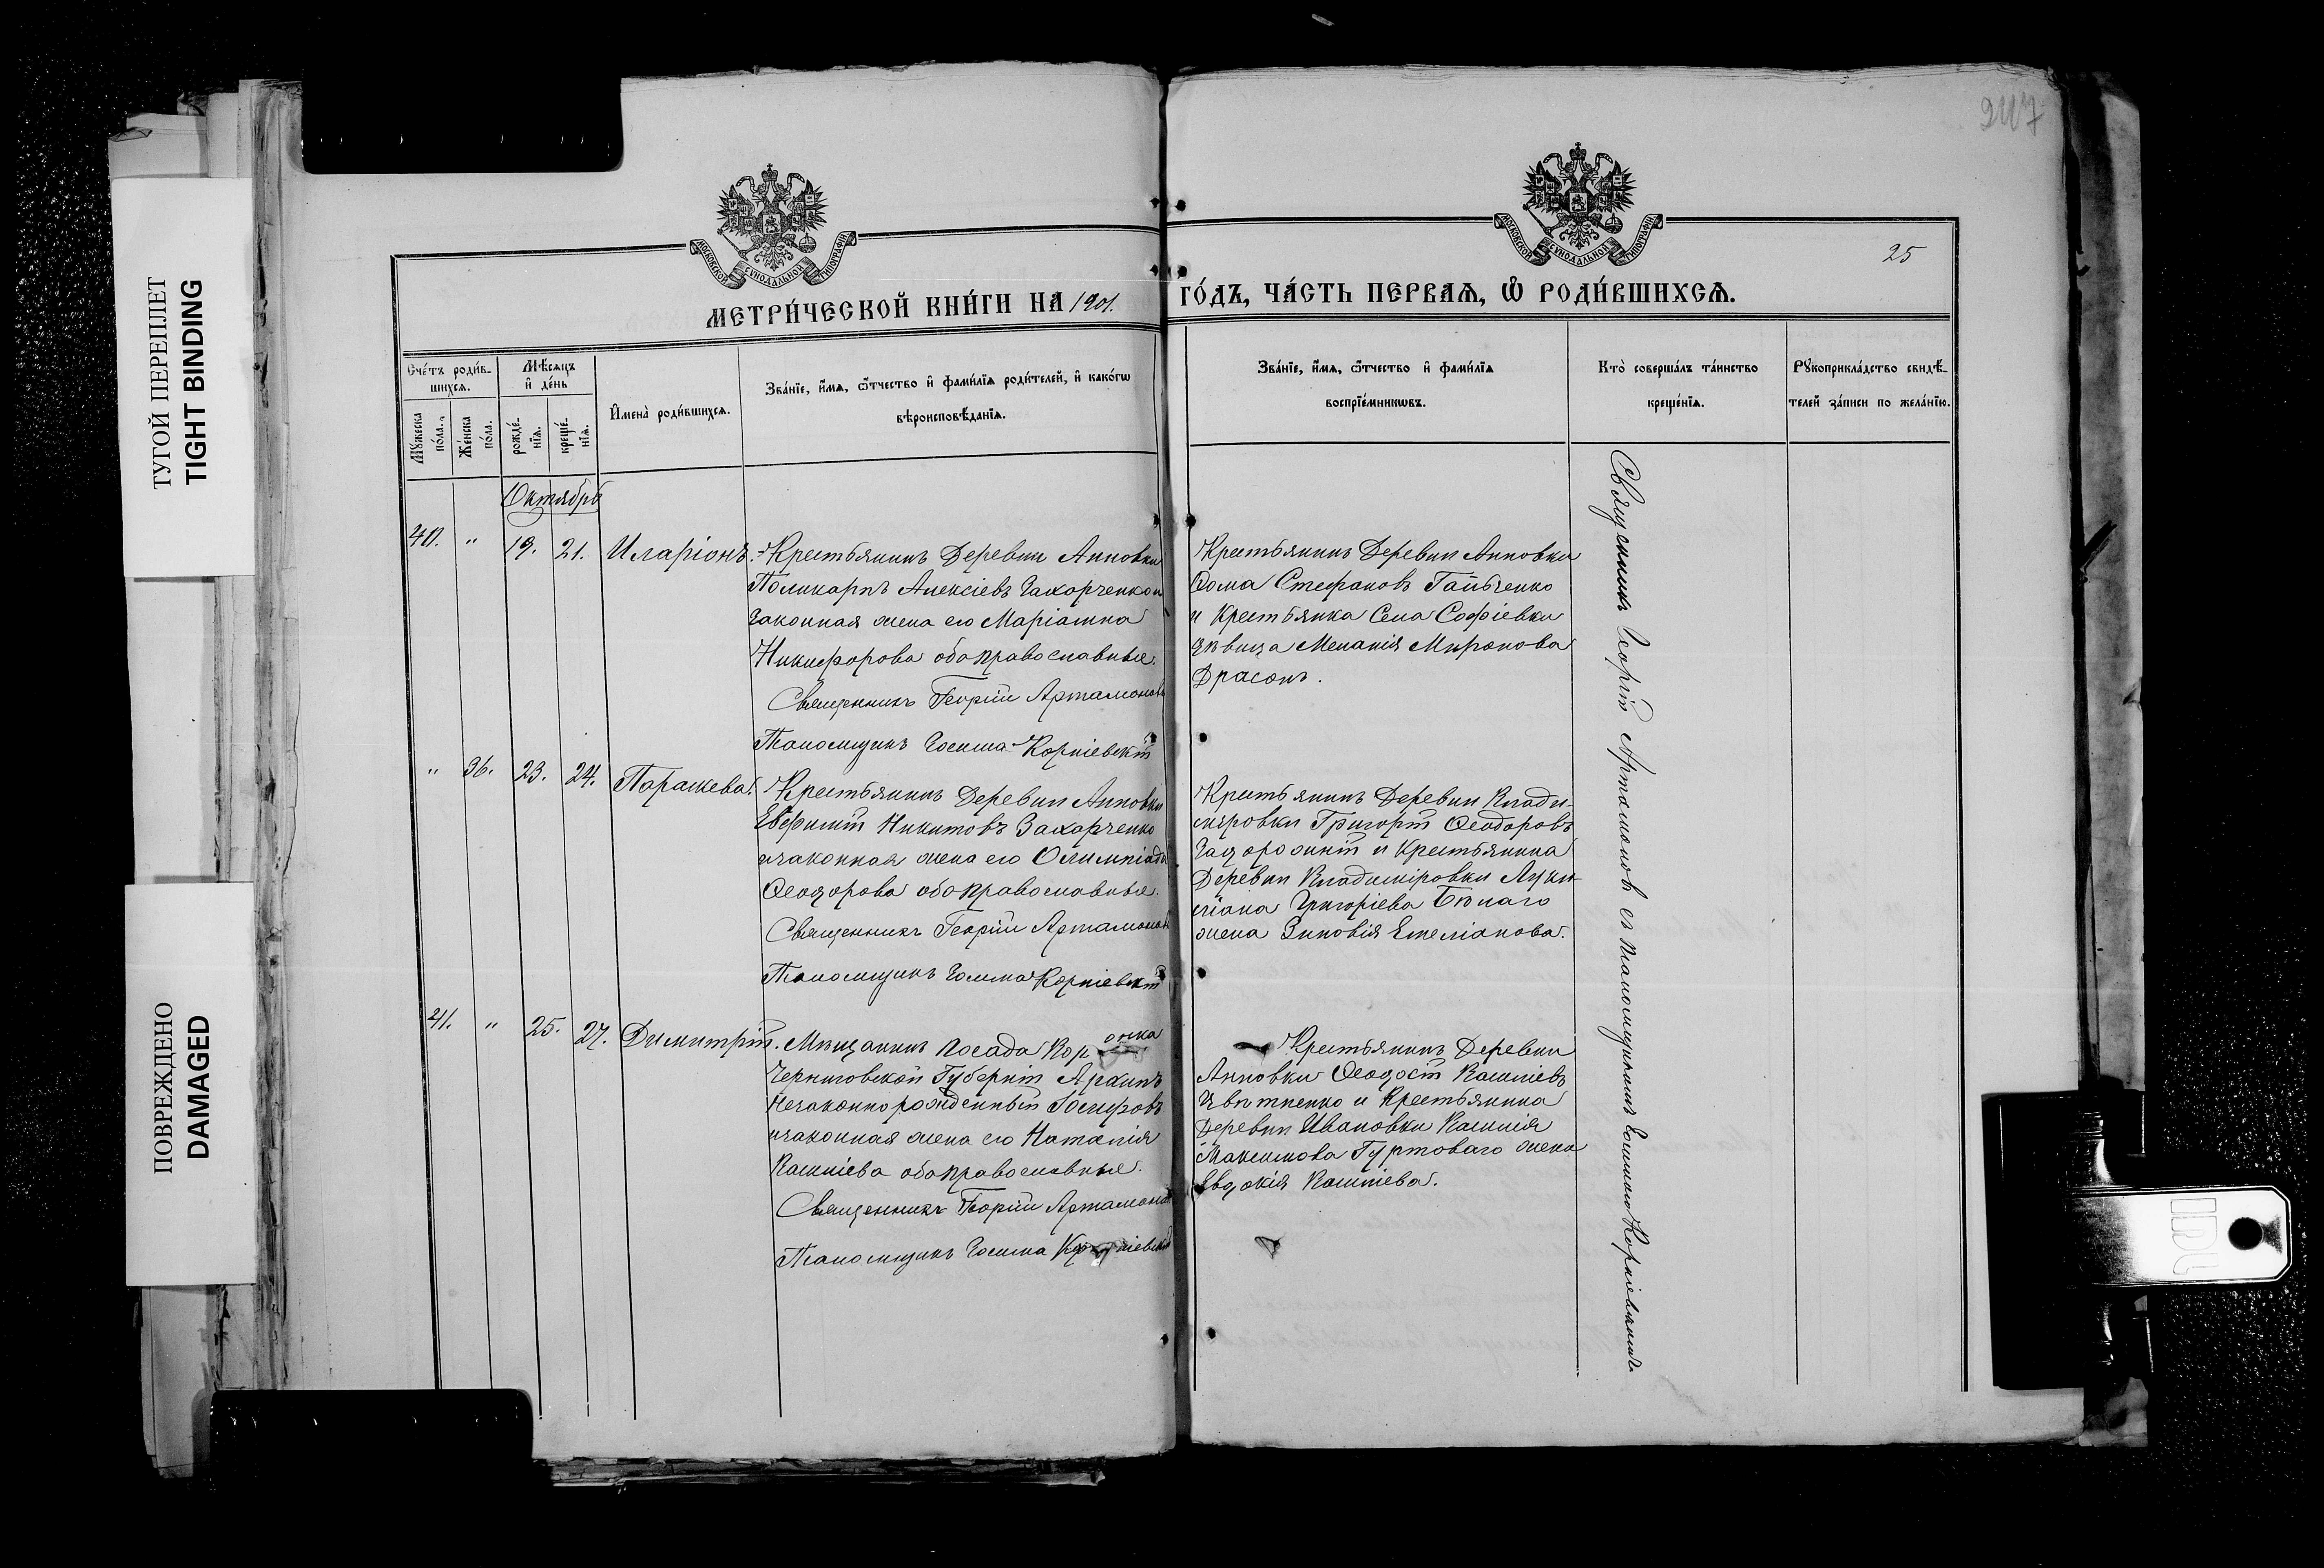 ТУГОЙ ПЕРЕПЛЕТ
TIGHT BINDING
ПОВРЕЖДЕНО
DAMAGED
247
25
МОСКОВСКОЙ СѴНОДАЛЬНОЙ ТИПОГРАФІИ
МОСКОВСКОЙ СѴНОДАЛЬНОЙ ТИПОГРАФІИ
МЕТРИ́ЧЕСКОЙ КНИ́ГИ НА 1901. ГО́ДЪ, ЧА́СТЬ ПЕРВАѦ, Ѽ РОДИ́ВШИХСѦ.
Сче́тъ роди́в-
шихсѧ.
Мꙋ́жеска
по́ла.
Же́нска
по́ла.
Мѣ́сѧцъ
и҆ де́нь
рожде́-
нїѧ.
креще́-
нїѧ.
И҆мена̀ роди́вшихсѧ.
Зва́нїе, и҆́мѧ, ѻ҆́тчество и҆ фами́лїѧ роди́телей, и҆ како́гѡ
вѣроисповѣ́данїѧ.
Зва́нїе, и҆́мѧ, ѻ҆́тчество и҆ фами́лїѧ
воспрїе́мникѡвъ.
Кто̀ соверша́лъ та́инство
креще́нїѧ.
Рꙋкоприкла́дство свидѣ́-
телей за́писи по жела́нїю.
Октябрь
40. " 19. 21. Иларіонъ.
Крестьянинъ Деревни Анновки
Поликарпъ Алексіевъ Захорченко и
законная жена его Маріамна
Никифорова оба православные.
Священникъ Георгій Артамоновъ
Псаломщикъ Косьма Корніевскій
Крестьянинъ Деревни Анновки
Ѳома Стефановъ Гапьченко
и Крестьянка Села Софіевки
дѣвица Меланія Миронова
Драсонъ.
" 36. 23. 24. Параскева.
Крестьянинъ Деревни Анновки
Евфимій Никитовъ Захорченко
и законная жена его Олимпіада
Ѳеодорова оба православные.
Священникъ Георгій Артамоновъ
Псаломщикъ Косьма Корніевскій
Крестьянинъ Деревни Влади-
міровки Григорій Ѳеодоровъ
Задорожній и Крестьянина
Деревни Владиміровки Луки-
ліана Григоріева Бѣлаго
жена Зиновія Емеліанова.
41. " 25. 27. Димитрій.
Мѣщанинъ посада Кор онка
Черниговской Губерніи Архипъ
Незаконнорожденный Іосифовъ
и законная жена его Наталія
Василіева оба православные.
Священникъ Георгій Артамоновъ
Псаломщикъ Косьма Корніевскій
Крестьянинъ Деревни
Анновки Ѳеодосій Василіевъ
Цвѣтненко и Крестьянина
Деревни Ивановки Василія
Максимова Гуртоваго жена
Евдокія Василіева.
Священникъ Георгій Артамоновъ съ псаломщикомъ Косьмою Корніевскимъ